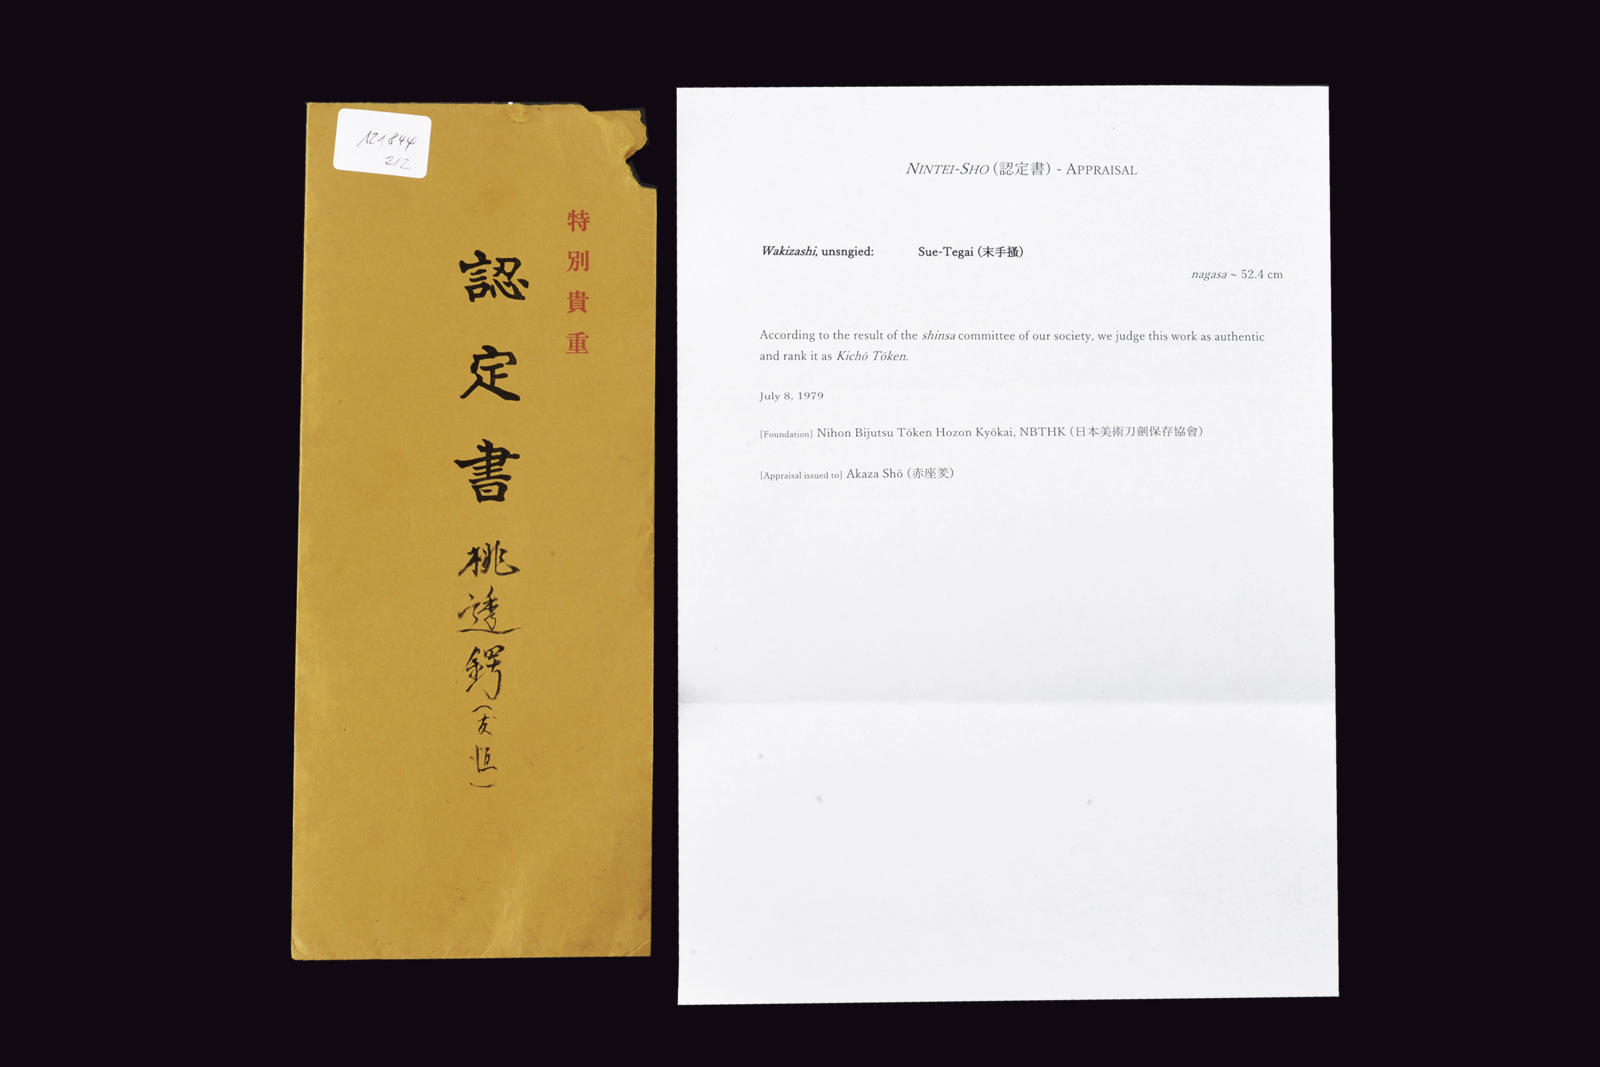 121844
2/2
特別貴重
認定書
桃透鍔
(友恒)
NINTEI-SHO (認定書) - APPRAISAL
Wakizashi, unsngied: Sue-Tegai (末手掻)
nagasa ~ 52.4 cm
According to the result of the shinsa committee of our society, we judge this work as authentic
and rank it as Kichō Tōken.
July 8, 1979
[Foundation] Nihon Bijutsu Tōken Hozon Kyōkai, NBTHK (日本美術刀劍保存協會)
[Appraisal issued to] Akaza Shō (赤座羑)